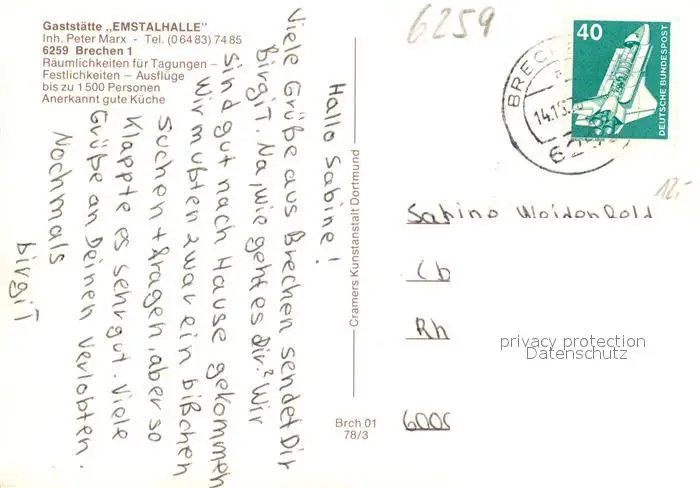 Gaststätte „EMSTALHALLE"
Inh. Peter Marx - Tel. (0 64 83) 74 85
6259 Brechen 1
Räumlichkeiten für Tagungen –
Festlichkeiten – Ausflüge
bis zu 1500 Personen
Anerkannt gute Küche
Hallo Sabine!
Viele Grüße aus Brechen sendet Dir
Birgit. Na, wie geht es Dir? Wir
sind gut nach Hause gekommen
Wir mußten zwar ein bißchen
suchen + fragen, aber so
klappte es sehr gut. Viele
Grüße an Deinen Verlobten.
Nochmals
Birgit
Cramers Kunstanstalt Dortmund
Brch 01
78/3
6259
40
DEUTSCHE BUNDESPOST
BRECHE
14.1
62
12,-
Sabine
privacy protection
Datenschutz